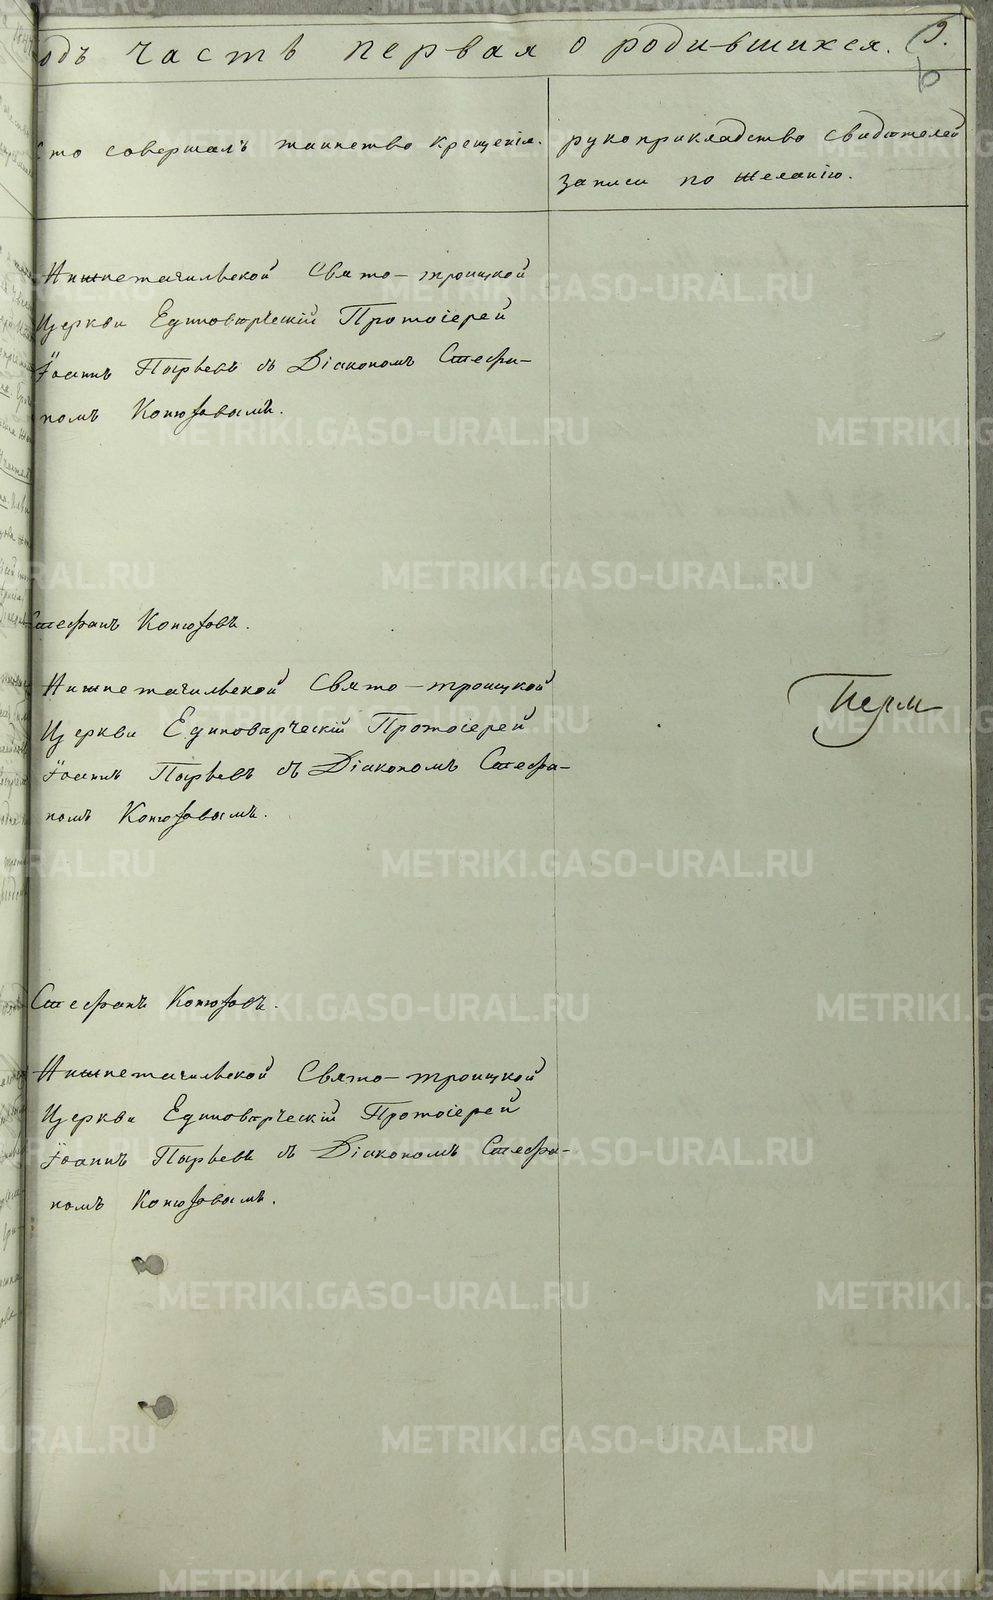 одъ часть первая о родившихся. 9.
6
кто совершалъ таинство крещенія.
рукоприкладство свидѣтелей
записи по желанію.
Нижнетагильской Свято-троицкой
Церкви Единовѣрческій Протоіерей
Іоаннъ Пырьевъ съ Діакономъ Стефа-
номъ Конюховымъ.
Стефанъ Конюховъ.
Нижнетагильской Свято-троицкой
Церкви Единовѣрческій Протоіерей
Перм
Іоаннъ Пырьевъ съ Діакономъ Стефа-
номъ Конюховымъ.
Стефанъ Конюховъ.
Нижнетагильской Свято-троицкой
Церкви Единовѣрческій Протоіерей
Іоаннъ Пырьевъ съ Діакономъ Стефа-
номъ Конюховымъ.
METRIKI.GASO-URAL.RU